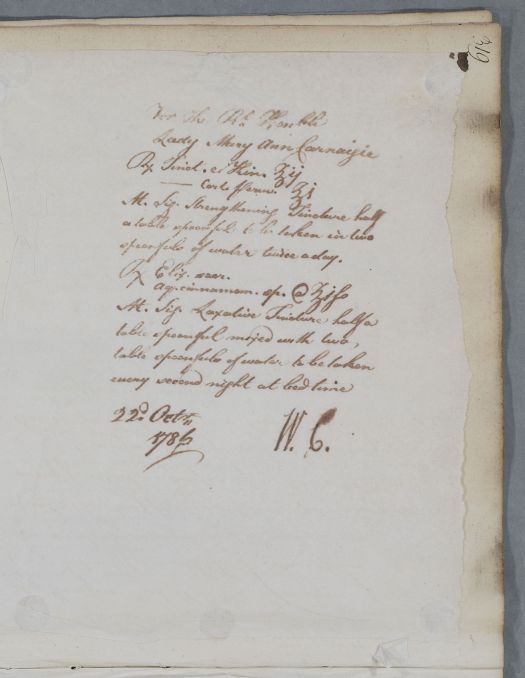 319
For the Rt. Honble
Lady Mary Ann Carnagie
Rx Tinct. e Kin. ℥ij
—— Cort. Peruv. ℥j
M. Sig. Strengthening Tincture half
a table spoonful to be taken in two
spoonfuls of water twice a day.
Rx Elix. sacr.
Aq. cinnamom. sp. @ ℥jſs
M. Sig. Laxative Tincture half a
table spoonful mixed with two,
table spoonfuls of water to be taken
every second night at bed time
22d. Octr.
1786
W. C.